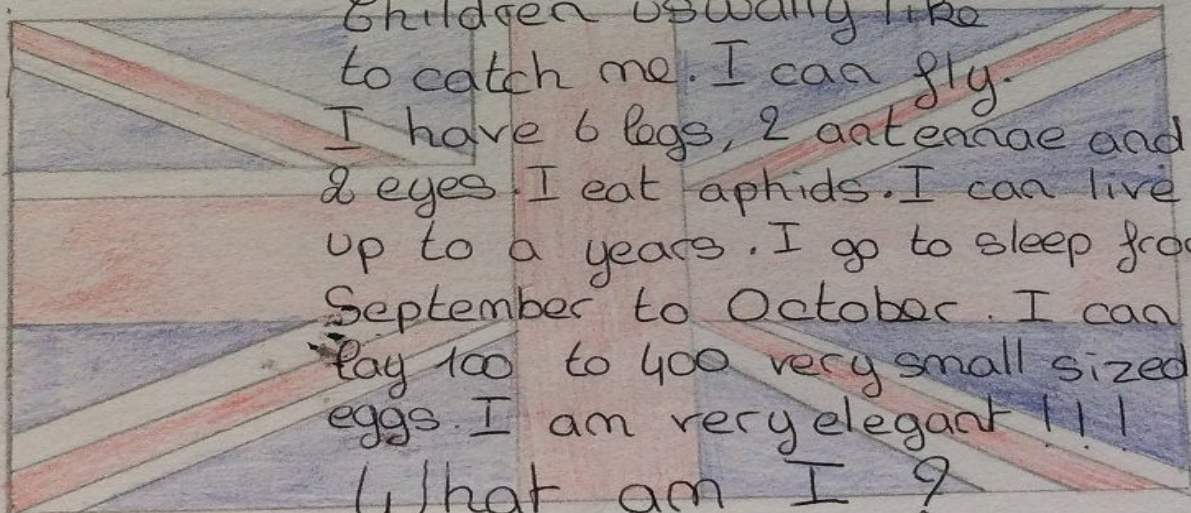 Children usually like
to catch me. I can fly.
I have 6 legs, 2 antennae and
2 eyes. I eat aphids. I can live
up to a years. I go to sleep
September to October. I can
lay 100 to 400 very small sized
eggs. I am very elegant !!!
What am I ?